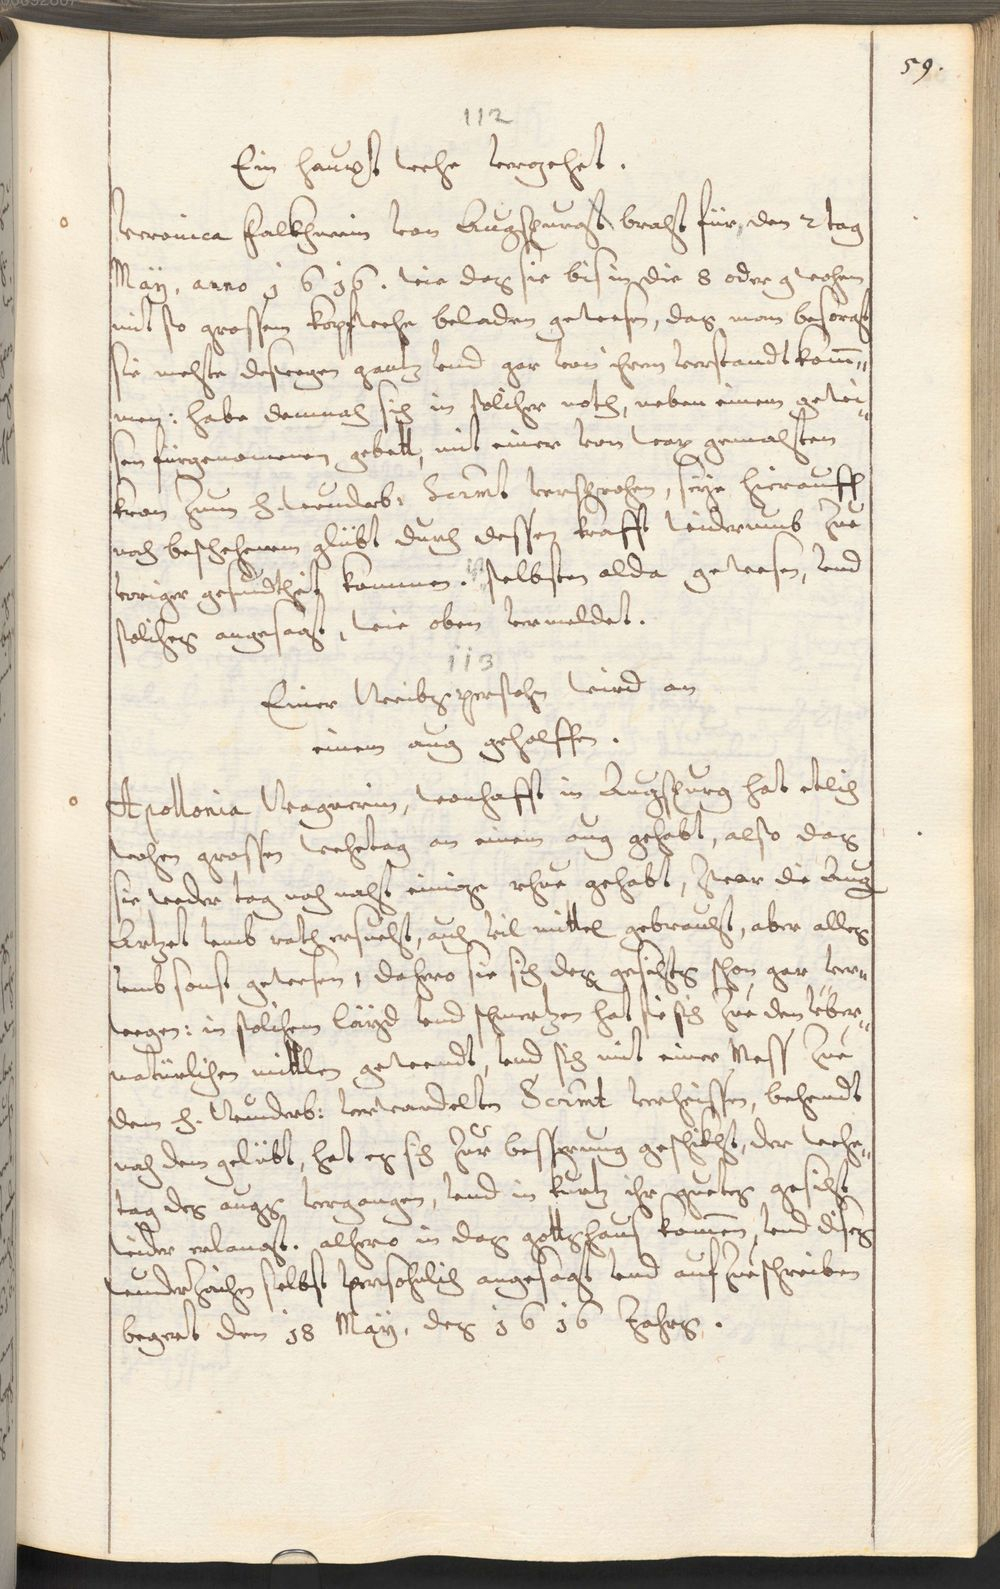 59.
112
Ein haupt wehe vergehet.
Veronica Falkhnerin von Augspurgt bracht für, den 2 tag
Maÿ, anno 1616. wie das sie bis in die 8 oder 9 wochen
mit so grossem kopfwehe beladen gewesen, das man besorgt
sie mechte deswegen gantz und gar von ihrem verstandt kom̄=
men: habe demnach sich in solcher noth, neben einem gewi=
sen fürgenomenen gebett, mit einer von wax gemachten
kron zum H. wunderb: Sacrmt versprochen, seÿe hierauff
nach beschehenem glübt durch dessen krafft widerumb zue
voriger gesundtheit kommen. selbsten alda gewesen, und
solches angesagt, wie oben vermeldet.
113
Einer Weibspersohn wird an
einem aug geholffen.
Apollonia Wagnerin, wonhafft in Augspurg hat etlich
wochen grossen wehetag an einem aug gehabt, also das
sie weder tag noch nacht einige rhue gehabt, zwar die Aug
Artzet umb rath ersucht, auch vil mittel gebraucht, aber alles
umb sonst gewesen, dahero sie sich des gesichts schon gar ver=
wegen: in solchem laÿd und schmertzen hat sie sich zue den über=
natürlichen mittlen gewendt, und sich mit einer Mess zue
dem H. Wunderb: verwandelten Sacrmt verheissen, behendt
nach dem gelübt, hat es sich zur besserung geschickht, der wehe=
tag des augs vergangen, und in kurtz ihr guetes gesicht
wider erlangt. alhero in das gottshaus kom̄en, und dises
wunderzaichen selbst persohnlich angesagt und aufzueschreiben
begert den 18 Maÿ, des 1616 Jahrs.